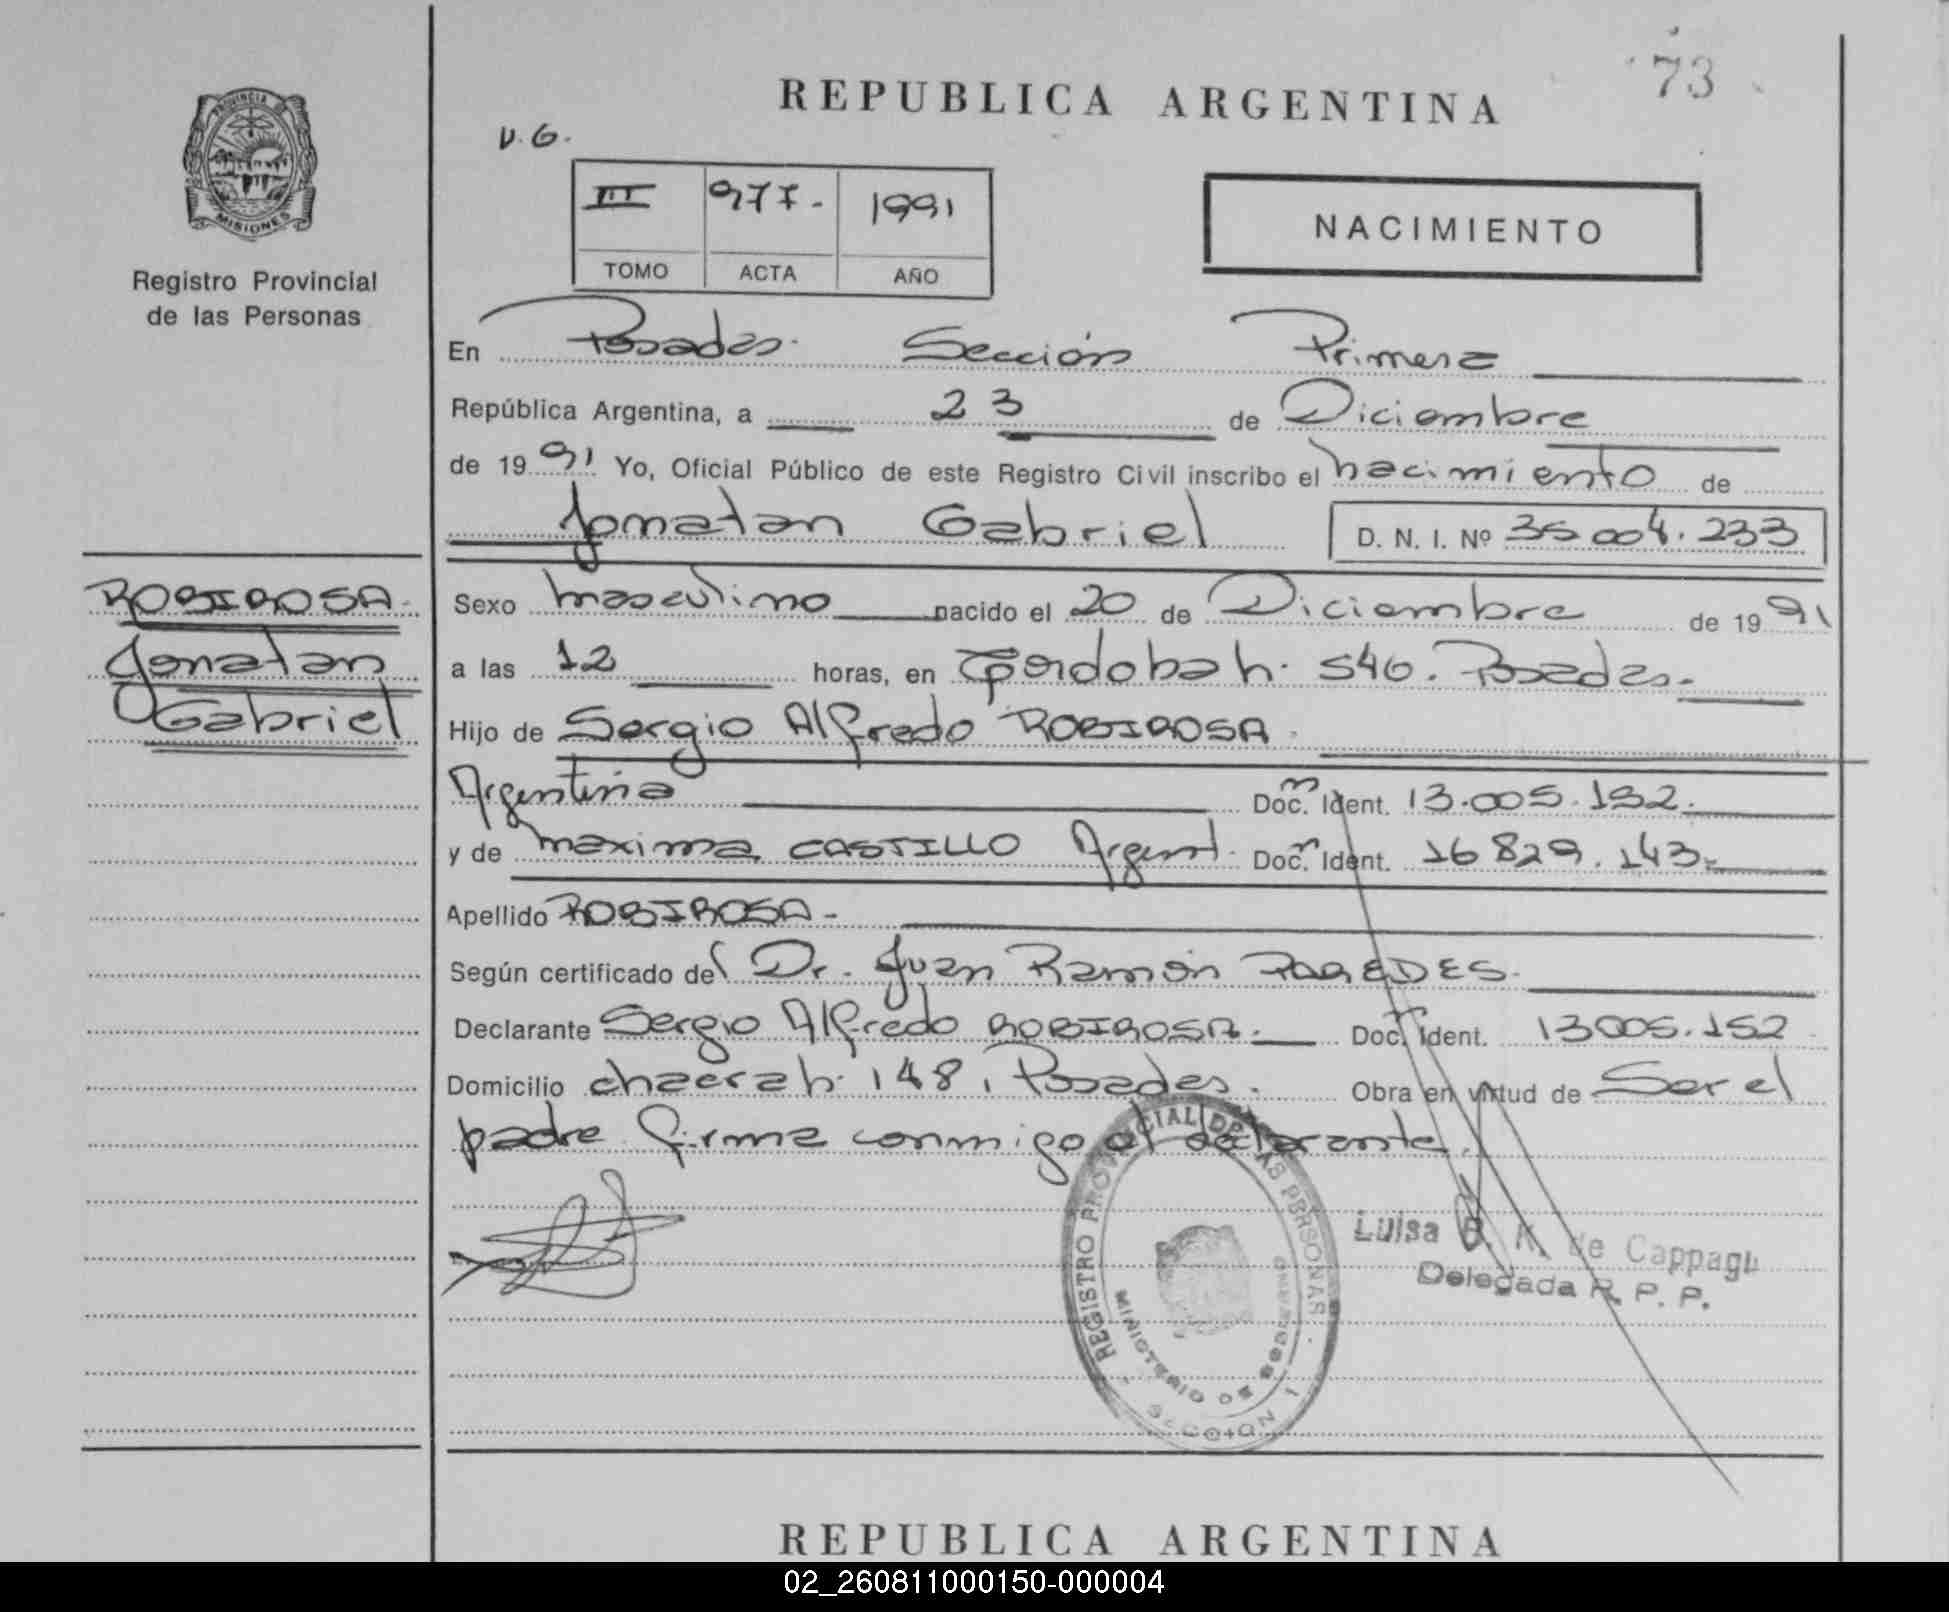 73
REPUBLICA ARGENTINA
V.G.
III 977.- 1991
TOMO ACTA AÑO
NACIMIENTO
PROVINCIA DE
MISIONES
Registro Provincial
de las Personas
En Posadas. Sección Primera
República Argentina, a 23 de Diciembre
de 1991 Yo, Oficial Público de este Registro Civil inscribo el nacimiento de
Jonatan Gabriel D. N. I. Nº 35 004.233
ROBIROSA.
Jonatan
Gabriel
Sexo masculino nacido el 20 de Diciembre de 1991
a las 12 horas, en Córdoba h. 546. Posadas.-
Hijo de Sergio Alfredo ROBIROSA.
Argentina Doc. Ident. 13.005.152.
y de maxima CASTILLO Argent. Doc. Ident. 16 829.143.-
Apellido ROBIROSA.-
Según certificado del Dr. Juan Ramón PAREDES.
Declarante Sergio Alfredo ROBIROSA. Doc. Ident. 13005.152
Domicilio chacra h. 148, Posadas. Obra en virtud de Ser el
padre firma conmigo el declarante.
REGISTRO PROVINCIAL DE LAS PERSONAS
MINISTERIO DE GOBIERNO
SECCION 1
Luisa B. K. de Cappagu
Delegada R. P. P.
REPUBLICA ARGENTINA
02_260811000150-000004